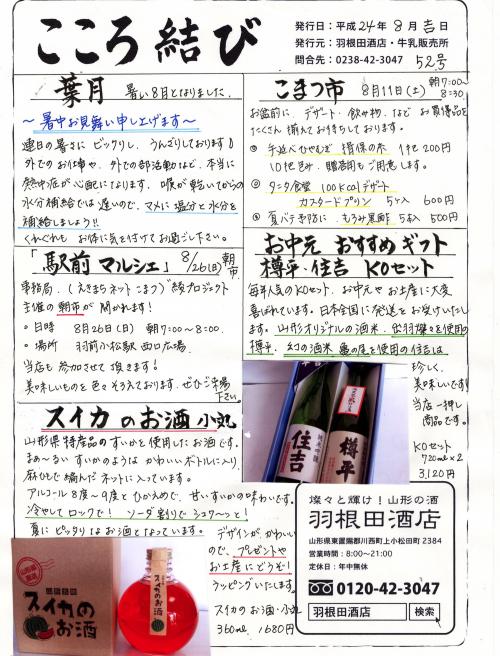 こころ結び
発行日：平成24年8月吉日
発行元：羽根田酒店・牛乳販売所
問合先：0238-42-3047 52号
葉月 暑い8月となりました。
～暑中お見舞い申し上げます～
連日の暑さに ビックリし、うんざりしております！
外でのお仕事や、外での部活動など、本当に
熱中症が心配になります。喉が乾いてからの
水分補給では遅いので、マメに塩分と水分を
補給しましょう!!
くれぐれも お体に気を付けてお過ごし下さい。
「駅前マルシェ」8/26(日)朝市
事務局、(えきまちネットこまつ)"綾プロジェクト
主催の朝市が 開かれます！
○日時 8月26日(日) 朝7:00～8:00.
○場所 羽前小松駅 西口広場.
当店も 参加させて頂きます！
美味しいものを色々そろえております、ぜひご来場
下さい。
スイカのお酒 小丸
山形県特産品のすいかを使用したお酒です。
まぁ～るい すいかのような かわいいボトルに入り、
麻ひもで編んだネットに入っています。
アルコール8度～9度とひかえめで、甘いすいかの味わいです。
冷やしてロックで！ ソーダ割りでシュワ～ッと！
夏にピッタリなお酒となっています。
デザインが、かわいい
ので、プレゼントや
お土産にどうぞ！
ラッピングいたします。
スイカのお酒・小丸
360ml 1680円
スイカの
お酒
スイカのお酒
こまつ市 8月11日(土) 朝7:00～8:30
お盆前に、デザート・飲み物、など お買得品を
たくさん 揃えてお待ちしております。
手延べひやむぎ 揖保の糸 1把 200円
10把包み、贈答用もご用意します。
タニタ食堂 100Kcalデザート
カスタードプリン 5ヶ入 600円
夏バテ予防に、もろみ黒酢 5本入 500円
お中元 おすすめギフト
樽平・住吉 KOセット
毎年人気のKOセット、お中元や お土産に大変
喜ばれています。日本全国に発送をお受けいたし
ます。山形オリジナルの酒米、出羽燦々を使用の
樽平、幻の酒米 亀の尾を使用の住吉は
珍しく、
美味しいです！
当店一押し
商品です。
KOセット
720ml×2
3,120円
純米吟醸
住吉
樽平
燦々と輝け！山形の酒
羽根田酒店
山形県東置賜郡川西町上小松田町2384
営業時間：8:00～21:00
定休日：年中無休
0120-42-3047
羽根田酒店 検索